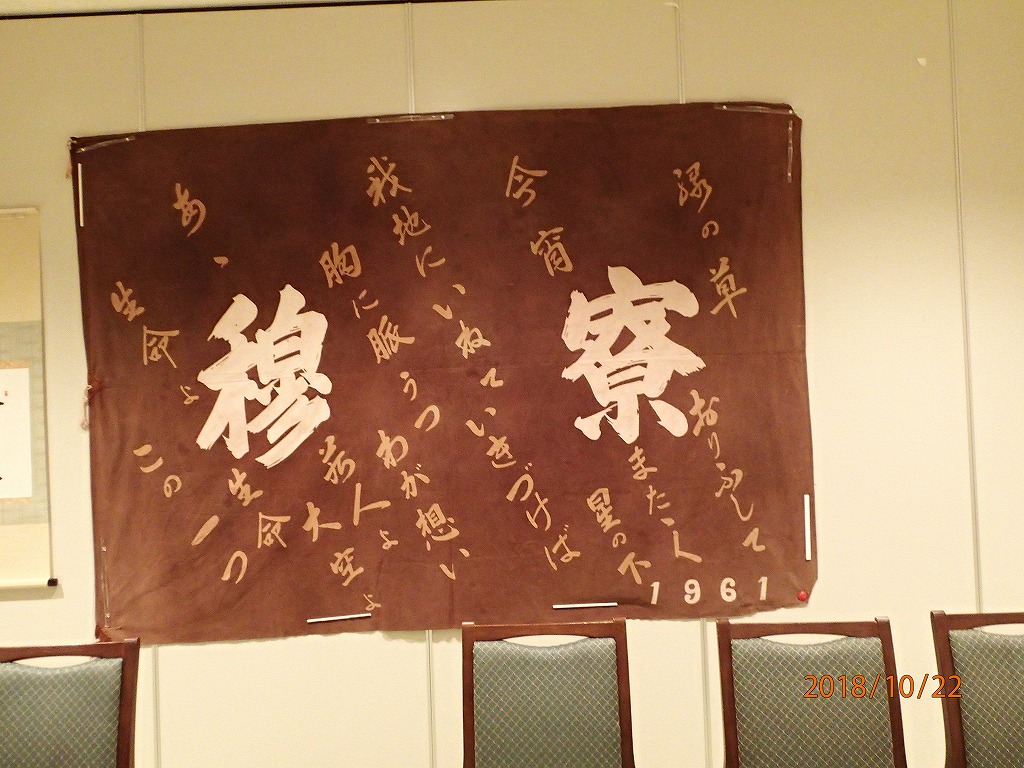 寮
穆
緑の草 おりふして
今宵 またゝく 星の下
我地にいねていきづけば
胸に脈うつ わが想い
あゝ 若人よ 大空よ
生命よ この一つ生命
1961
2018/10/22